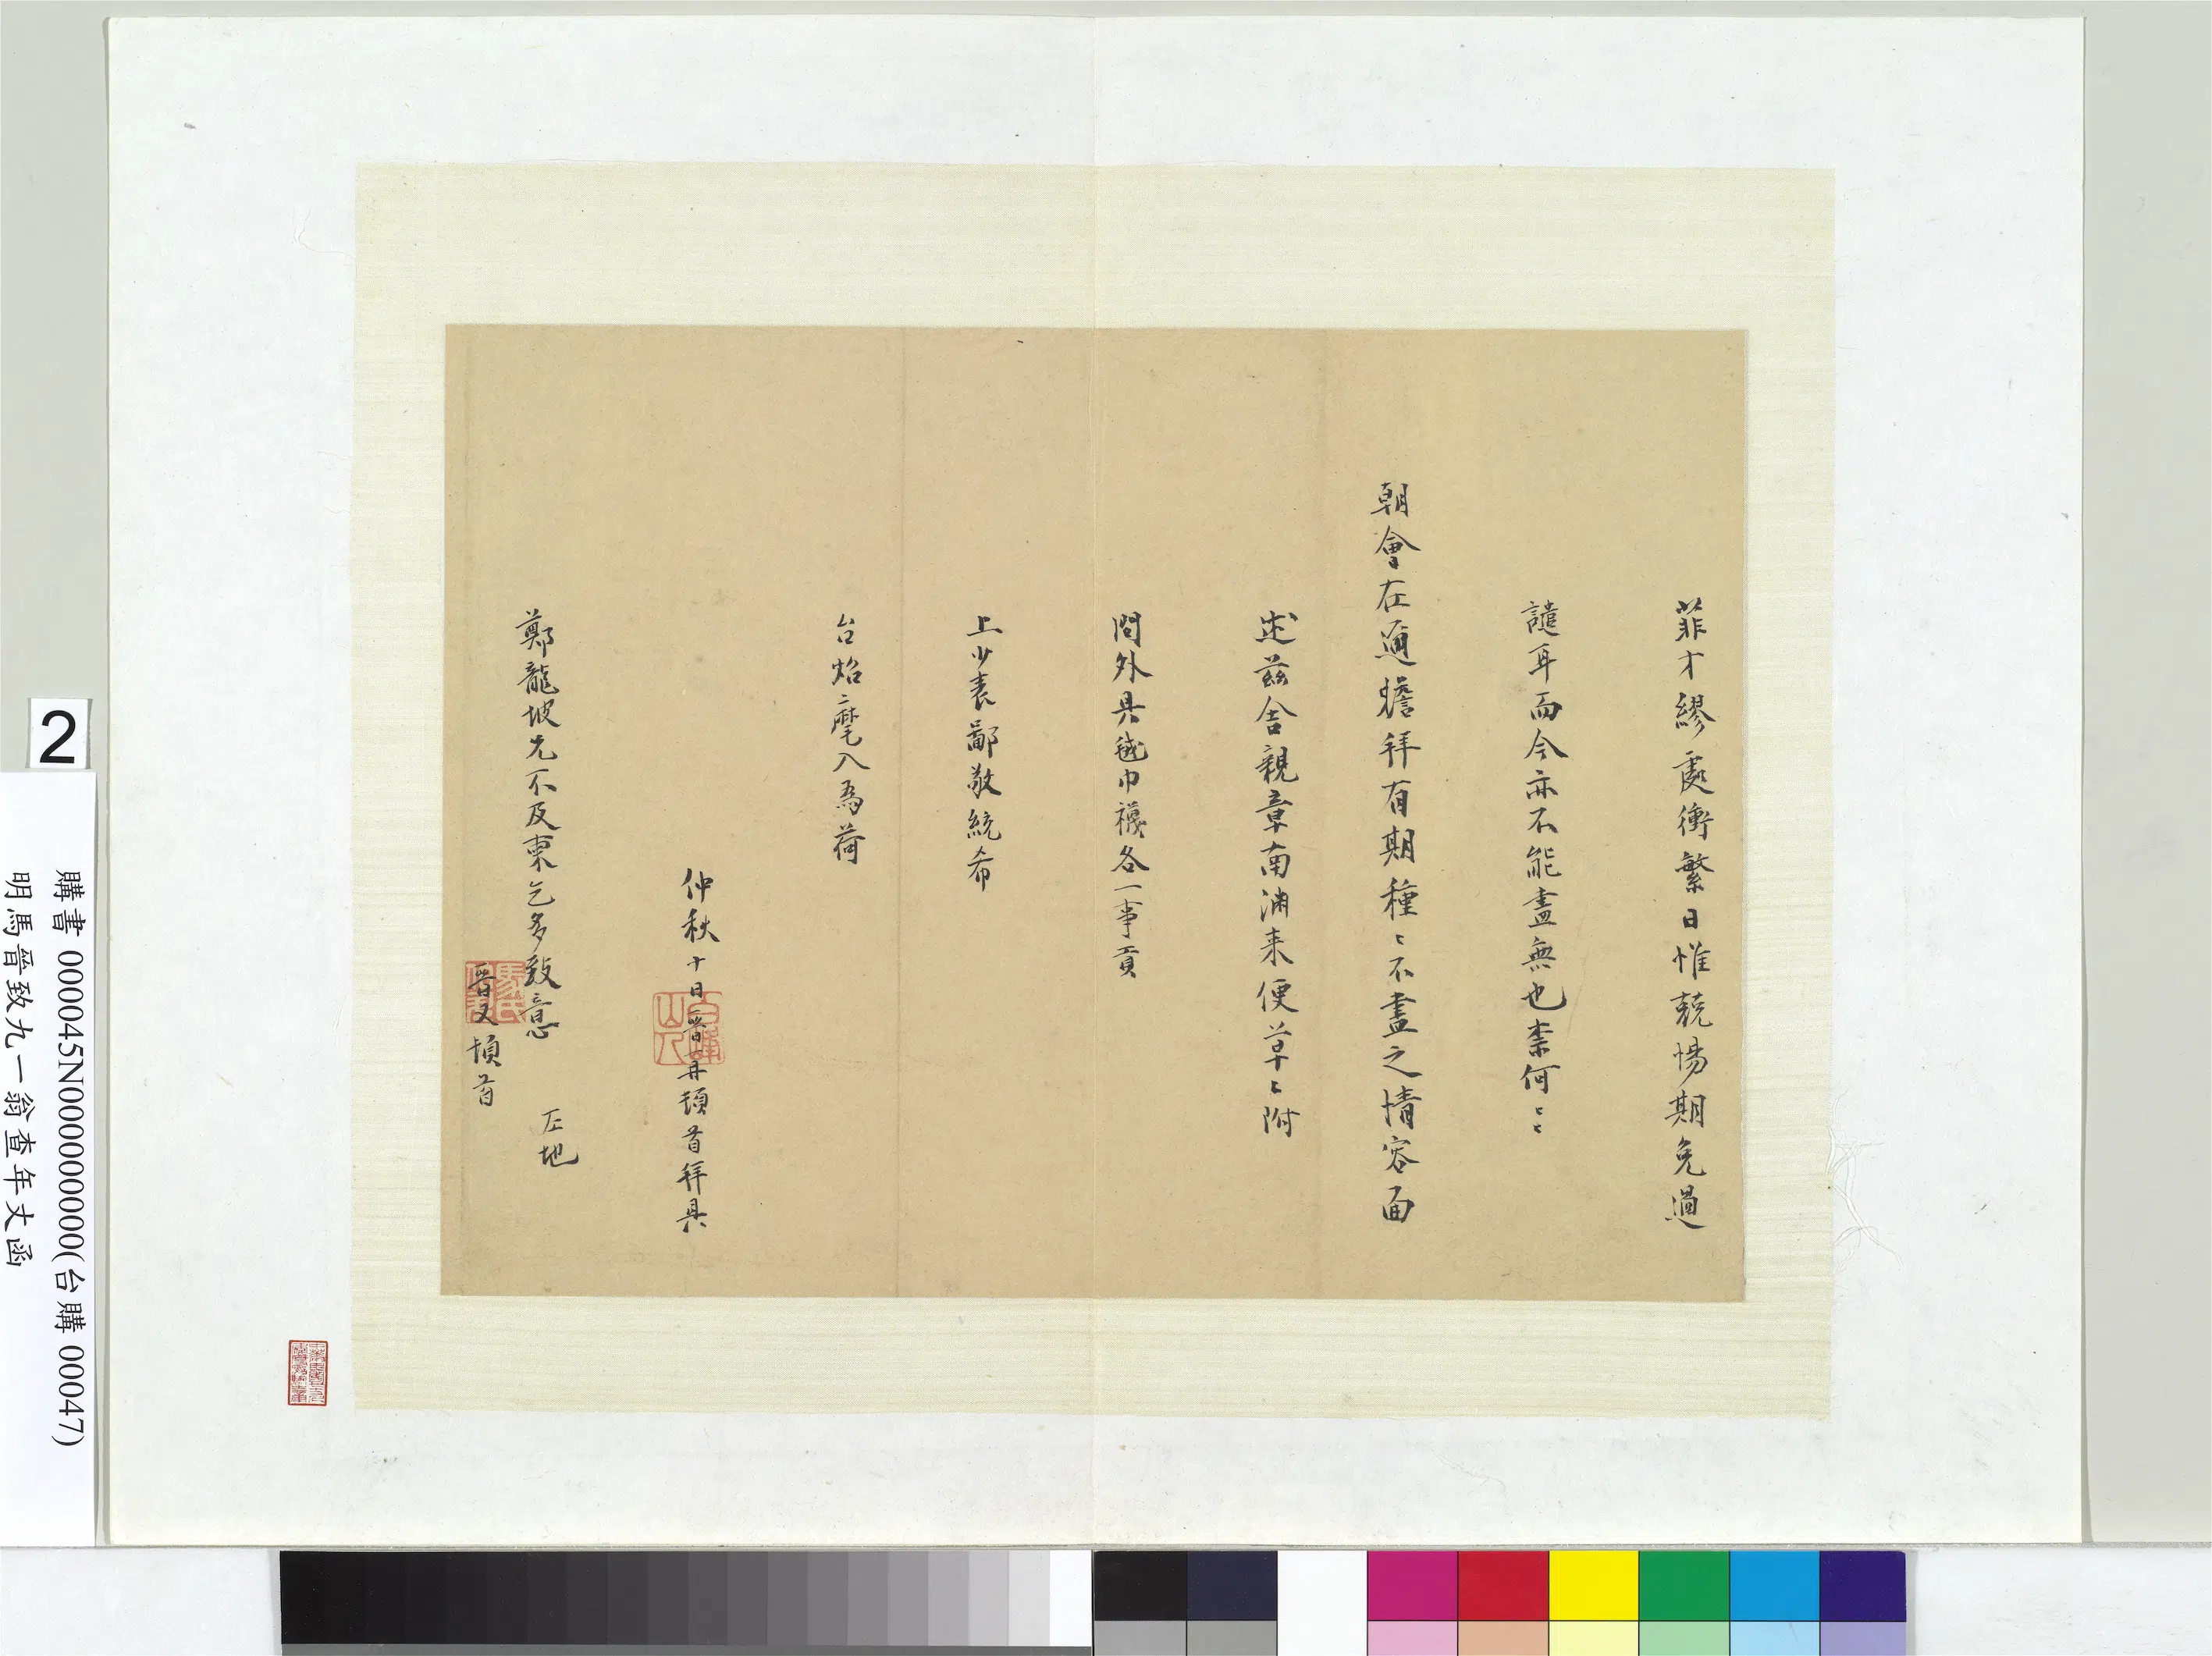 菲才繆處衝繁日惟兢惕期免過
譴耳而今亦不能盡無也柰何〻〻
朝會在邇瞻拜有期種〻不盡之情容面
述茲舍親章南浦来便草〻附
問外具毧巾襪各一事貢
上少表鄙敬統希
台炤麾入為荷
仲秋十日晉再頓首拜具
鄭龍坡兄不及柬乞多致意
左地
晉又頓首
白峰山人
馬氏
2
購書 000045N000000000(台購 00047)
明馬晉致九一翁查年丈函